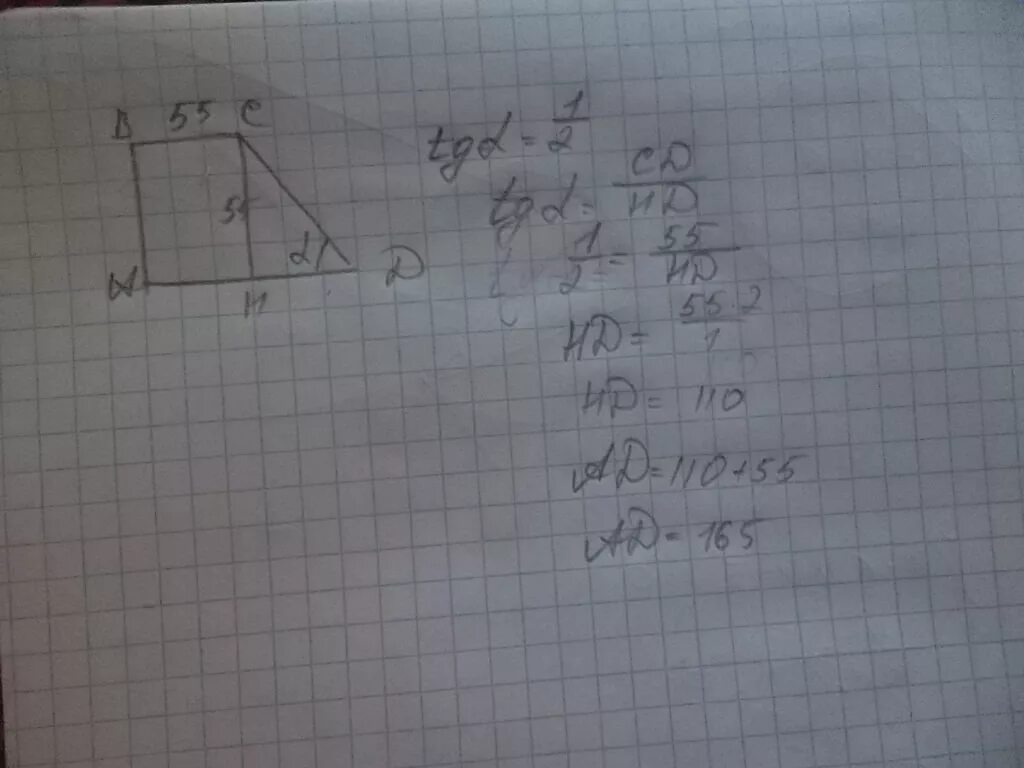 B 55 C
55
α
A H D
tg α = 1/2
tg α = CD/HD
1/2 = 55/HD
HD = 55·2/1
HD = 110
AD = 110 + 55
AD = 165